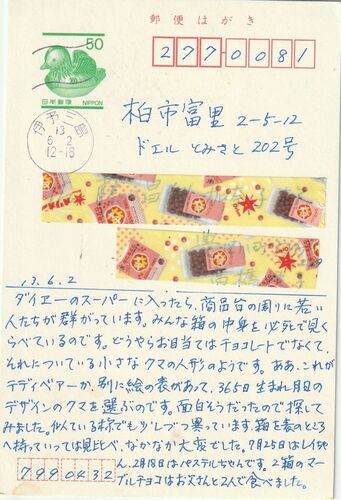 郵便はがき
50
日本郵便 NIPPON
277-0081
伊予三島
13
6.2
12-18
柏市富里 2-5-12
ドエル とみさと 202号
13.6.2
ダイエーのスーパーに入ったら、商品台の周りに若い
人たちが群がっています。みんな箱の中身を必死で見く
らべているのです。どうやらお目当てはチョコレートでなくて、
それについている小さなクマの人形のようです。ああ、これが
テディベアーか、別に絵の表があって、365日生まれ月日の
デザインのクマを選ぶのです。面白そうだったので探して
みました。似ている様でも少しづつ異っています。箱を表のところ
へ持っていっては見比べ、なかなか大変でした。7月25日はレイちゃ
ん、2月18日はパステルちゃんです。2箱のマー
ブルチョコはお父さんと2人で食べました。
7990432